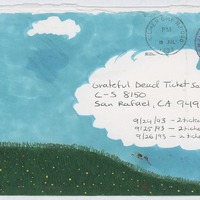 Grateful Dead Ticket Sa
C-S 8150
San Rafael, CA 949
9/24/93 - 2 ticke
9/25/93 - 2 ticke
9/26/93 - 2 tick